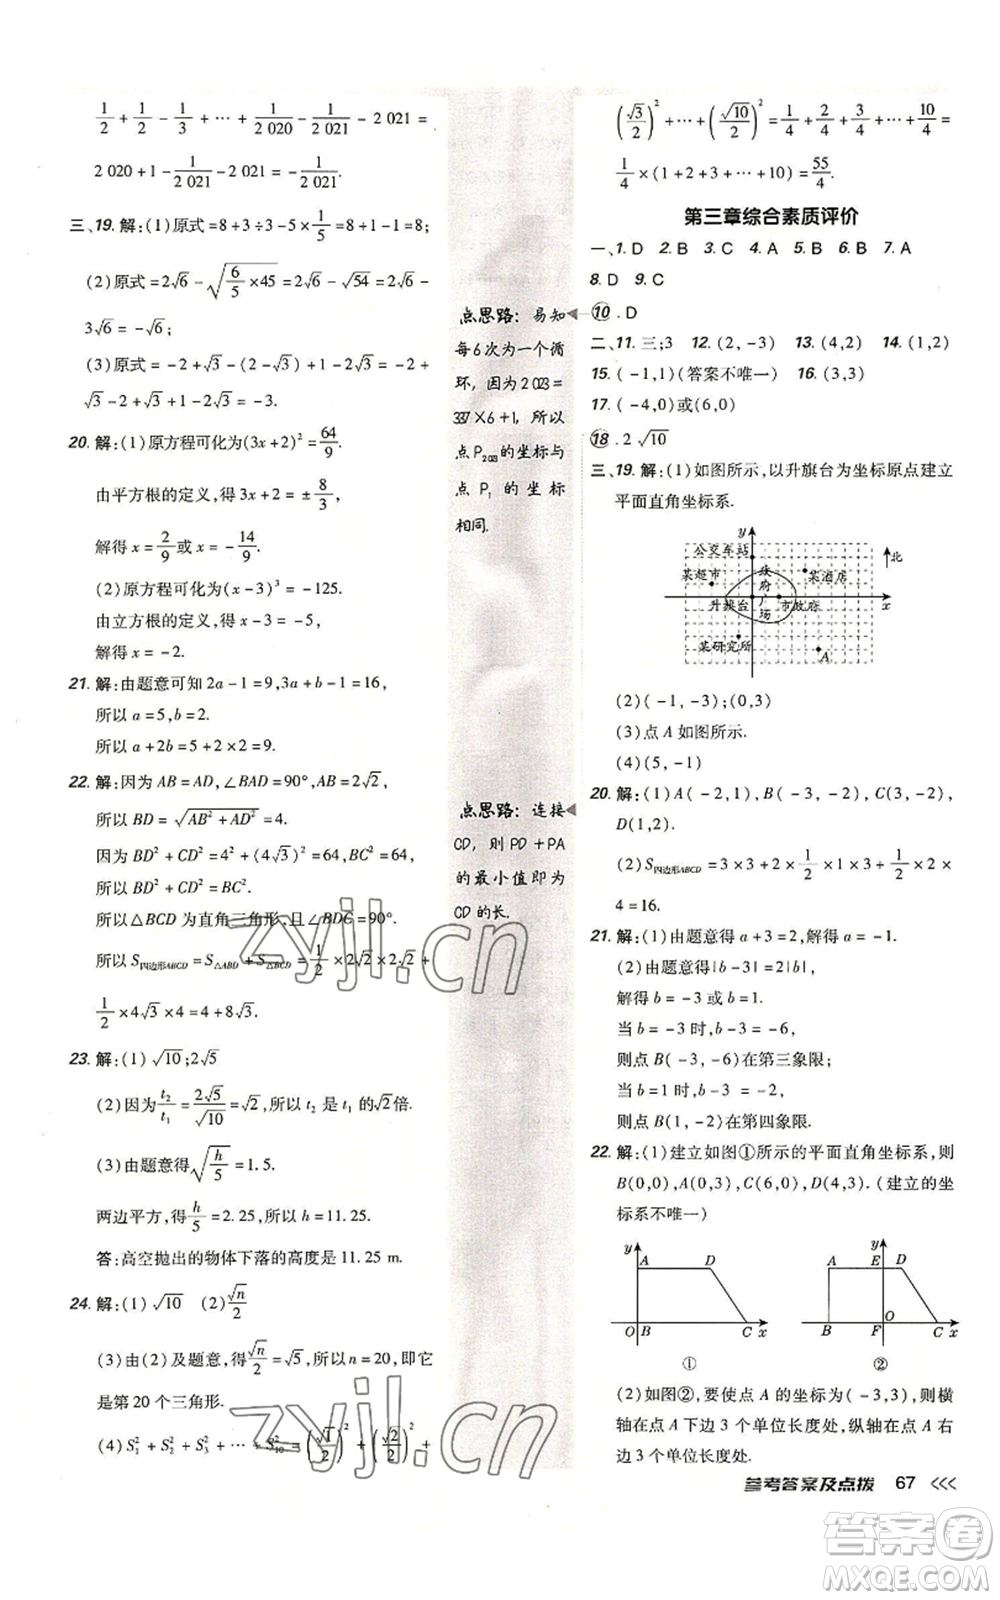 1/2 + 1/2 - 1/3 + ⋯ + 1/2 020 - 1/2 021 - 2 021 =
2 020 + 1 - 1/2 021 - 2 021 = - 1/2 021.
三、19. 解:(1)原式 = 8 + 3 ÷ 3 - 5 × 1/5 = 8 + 1 - 1 = 8;
(2)原式 = 2√6 - √(6/5 × 45) = 2√6 - √54 = 2√6 -
3√6 = -√6.
(3)原式 = -2 + √3 - (2 - √3) + 1 - √3 = -2 +
√3 - 2 + √3 + 1 - 2√3 = -3.
20. 解:(1)原方程可化为(3x + 2)² = 64/9.
由平方根的定义,得 3x + 2 = ± 8/3,
解得 x = 2/9 或 x = - 14/9.
(2)原方程可化为(x - 3)³ = -125.
由立方根的定义,得 x - 3 = -5,
解得 x = -2.
21. 解:由题意可知 2a - 1 = 9,3a + b - 1 = 16,
所以 a = 5,b = 2.
所以 a + 2b = 5 + 2 × 2 = 9.
22. 解:因为 AB = AD,∠BAD = 90°,AB = 2√2,
所以 BD = √(AB² + AD²) = 4.
因为 BD² + CD² = 4² + (4√3)² = 64,BC² = 64,
所以 BD² + CD² = BC².
所以△BCD 为直角三角形,且∠BDC = 90°.
所以 S四边形ABCD = S△ABD + S△BCD = 1/2 × 2√2 × 2√2 +
1/2 × 4√3 × 4 = 4 + 8√3.
23. 解:(1)√10;2√5
(2)因为 t₂/t₁ = 2√5/√10 = √2,所以 t₂ 是 t₁ 的√2倍.
(3)由题意得√(h/5) = 1.5.
两边平方,得 h/5 = 2.25,所以 h = 11.25.
答:高空抛出的物体下落的高度是 11.25 m.
24. 解:(1)√10 (2)√n/2
(3)由(2)及题意,得 √n/2 = √5,所以 n = 20,即它
是第 20 个三角形.
(4)S₁² + S₂² + S₃² + ⋯ + S₁₀² = (√1/2)² + (√2/2)² +
点思路:易知
每6次为一个循
环,因为2 023=
337×6+1,所以
点P₂₀₂₃的坐标与
点 P₁ 的坐标
相同.
点思路:连接
CD,则 PD+PA
的最小值即为
CD的长.
(√3/2)² + ⋯ + (√10/2)² = 1/4 + 2/4 + 3/4 + ⋯ + 10/4 =
1/4 × (1 + 2 + 3 + ⋯ + 10) = 55/4.
第三章综合素质评价
一、1. D 2. B 3. C 4. A 5. B 6. B 7. A
8. D 9. C
10. D
二、11. 三;3 12. (2, -3) 13. (4,2) 14. (1,2)
15. (-1,1)(答案不唯一) 16. (3,3)
17. (-4,0)或(6,0)
18. 2√10
三、19. 解:(1)如图所示,以升旗台为坐标原点建立
平面直角坐标系.
y
公交车站
北
某超市
政府广场
某酒店
升旗台
市政府
x
某研究所
A
(2)(-1, -3);(0,3)
(3)点 A 如图所示.
(4)(5, -1)
20. 解:(1)A(-2,1),B(-3, -2),C(3, -2),
D(1,2).
(2)S四边形ABCD = 3 × 3 + 2 × 1/2 × 1 × 3 + 1/2 × 2 ×
4 = 16.
21. 解:(1)由题意得 a + 3 = 2,解得 a = -1.
(2)由题意得|b - 3| = 2|b|,
解得 b = -3 或 b = 1.
当 b = -3 时,b - 3 = -6,
则点 B(-3, -6)在第三象限;
当 b = 1 时,b - 3 = -2,
则点 B(1, -2)在第四象限.
22. 解:(1)建立如图①所示的平面直角坐标系,则
B(0,0),A(0,3),C(6,0),D(4,3).(建立的坐
标系不唯一)
y A D
O B C x
①
y
A E D
O
B F C x
②
(2)如图②,要使点 A 的坐标为(-3,3),则横
轴在点 A 下边 3 个单位长度处,纵轴在点 A 右
边 3 个单位长度处.
参考答案及点拨 67
zyjl.cn
zyjl.cn
答案卷
MXQE.COM